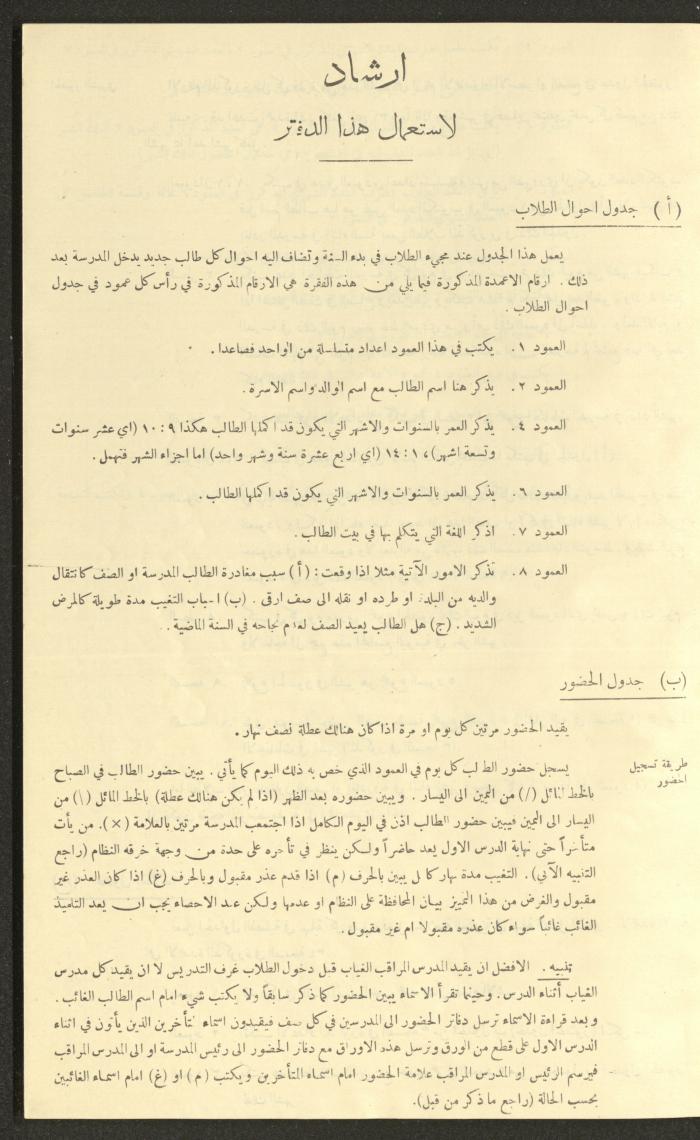 ارشاد
لاستعمال هذا الدفتر
( أ ) جدول احوال الطلاب
يعمل هذا الجدول عند مجيء الطلاب في بدء السنة وتضاف اليه احوال كل طالب جديد يدخل المدرسة بعد
ذلك . ارقام الاعمدة المذكورة فيما يلي من هذه الفقرة هي الارقام المذكورة في رأس كل عمود في جدول
احوال الطلاب .
العمود ١. يكتب في هذا العمود اعداد متسلسلة من الواحد فصاعدا .
العمود ٢. يذكر هنا اسم الطالب مع اسم الوالد واسم الاسرة .
العمود ٤. يذكر العمر بالسنوات والاشهر التي يكون قد اكملها الطالب هكذا ٩ : ١٠ (اي عشر سنوات
وتسعة اشهر)، ١ : ١٤ (اي اربع عشرة سنة وشهر واحد) اما اجزاء الشهر فتهمل .
العمود ٦. يذكر العمر بالسنوات والاشهر التي يكون قد اكملها الطالب .
العمود ٧. اذكر اللغة التي يتكلم بها في بيت الطالب .
العمود ٨. تذكر الامور الآتية مثلا اذا وقعت : ( أ ) سبب مغادرة الطالب المدرسة او الصف كانتقال
والديه من البلدة او طرده او نقله الى صف ارقى . (ب) اسباب التغيب مدة طويلة كالمرض
الشديد . (ج) هل الطالب يعيد الصف لعدم نجاحه في السنة الماضية .
(ب) جدول الحضور
يقيد الحضور مرتين كل يوم او مرة اذا كان هنالك عطلة نصف نهار .
طريقة تسجيل
الحضور
يسجل حضور الطالب كل يوم في العمود الذي خص به ذلك اليوم كما يأتي . يبين حضور الطالب في الصباح
بالخط المائل (/) من اليمين الى اليسار . ويبين حضوره بعد الظهر (اذا لم يكن هنالك عطلة) بالخط المائل (\) من
اليسار الى اليمين فيبين حضور الطالب اذن في اليوم الكامل اذا اجتمعت المدرسة مرتين بالعلامة (×). من يأت
متأخراً حتى نهاية الدرس الاول يعد حاضراً ولكن ينظر في تأخره على حدة من وجهة خرقه النظام (راجع
التنبيه الآتي) . التغيب مدة نهار كامل يبين بالحرف (م) اذا قدم عذر مقبول وبالحرف (غ) اذا كان العذر غير
مقبول والغرض من هذا التمييز بيان المحافظة على النظام او عدمها ولكن عند الاحصاء يجب ان يعد التلميذ
الغائب غائباً سواء كان عذره مقبولا ام غير مقبول .
تنبيه . الافضل ان يقيد المدرس المراقب الغياب قبل دخول الطلاب غرف التدريس لا ان يقيد كل مدرس
الغياب أثناء الدرس . وحينما تقرأ الاسماء يبين الحضور كما ذكر سابقاً ولا يكتب شيء امام اسم الطالب الغائب .
وبعد قراءة الاسماء ترسل دفاتر الحضور الى المدرسين في كل صف فيقيدون اسماء المتأخرين الذين يأتون في اثناء
الدرس الاول على قطع من الورق وترسل هذه الاوراق مع دفاتر الحضور الى رئيس المدرسة او الى المدرس المراقب
فيرسم الرئيس او المدرس المراقب علامة الحضور امام اسماء المتأخرين ويكتب ( م ) او (غ) امام اسماء الغائبين
بحسب الحالة (راجع ما ذكر من قبل) .